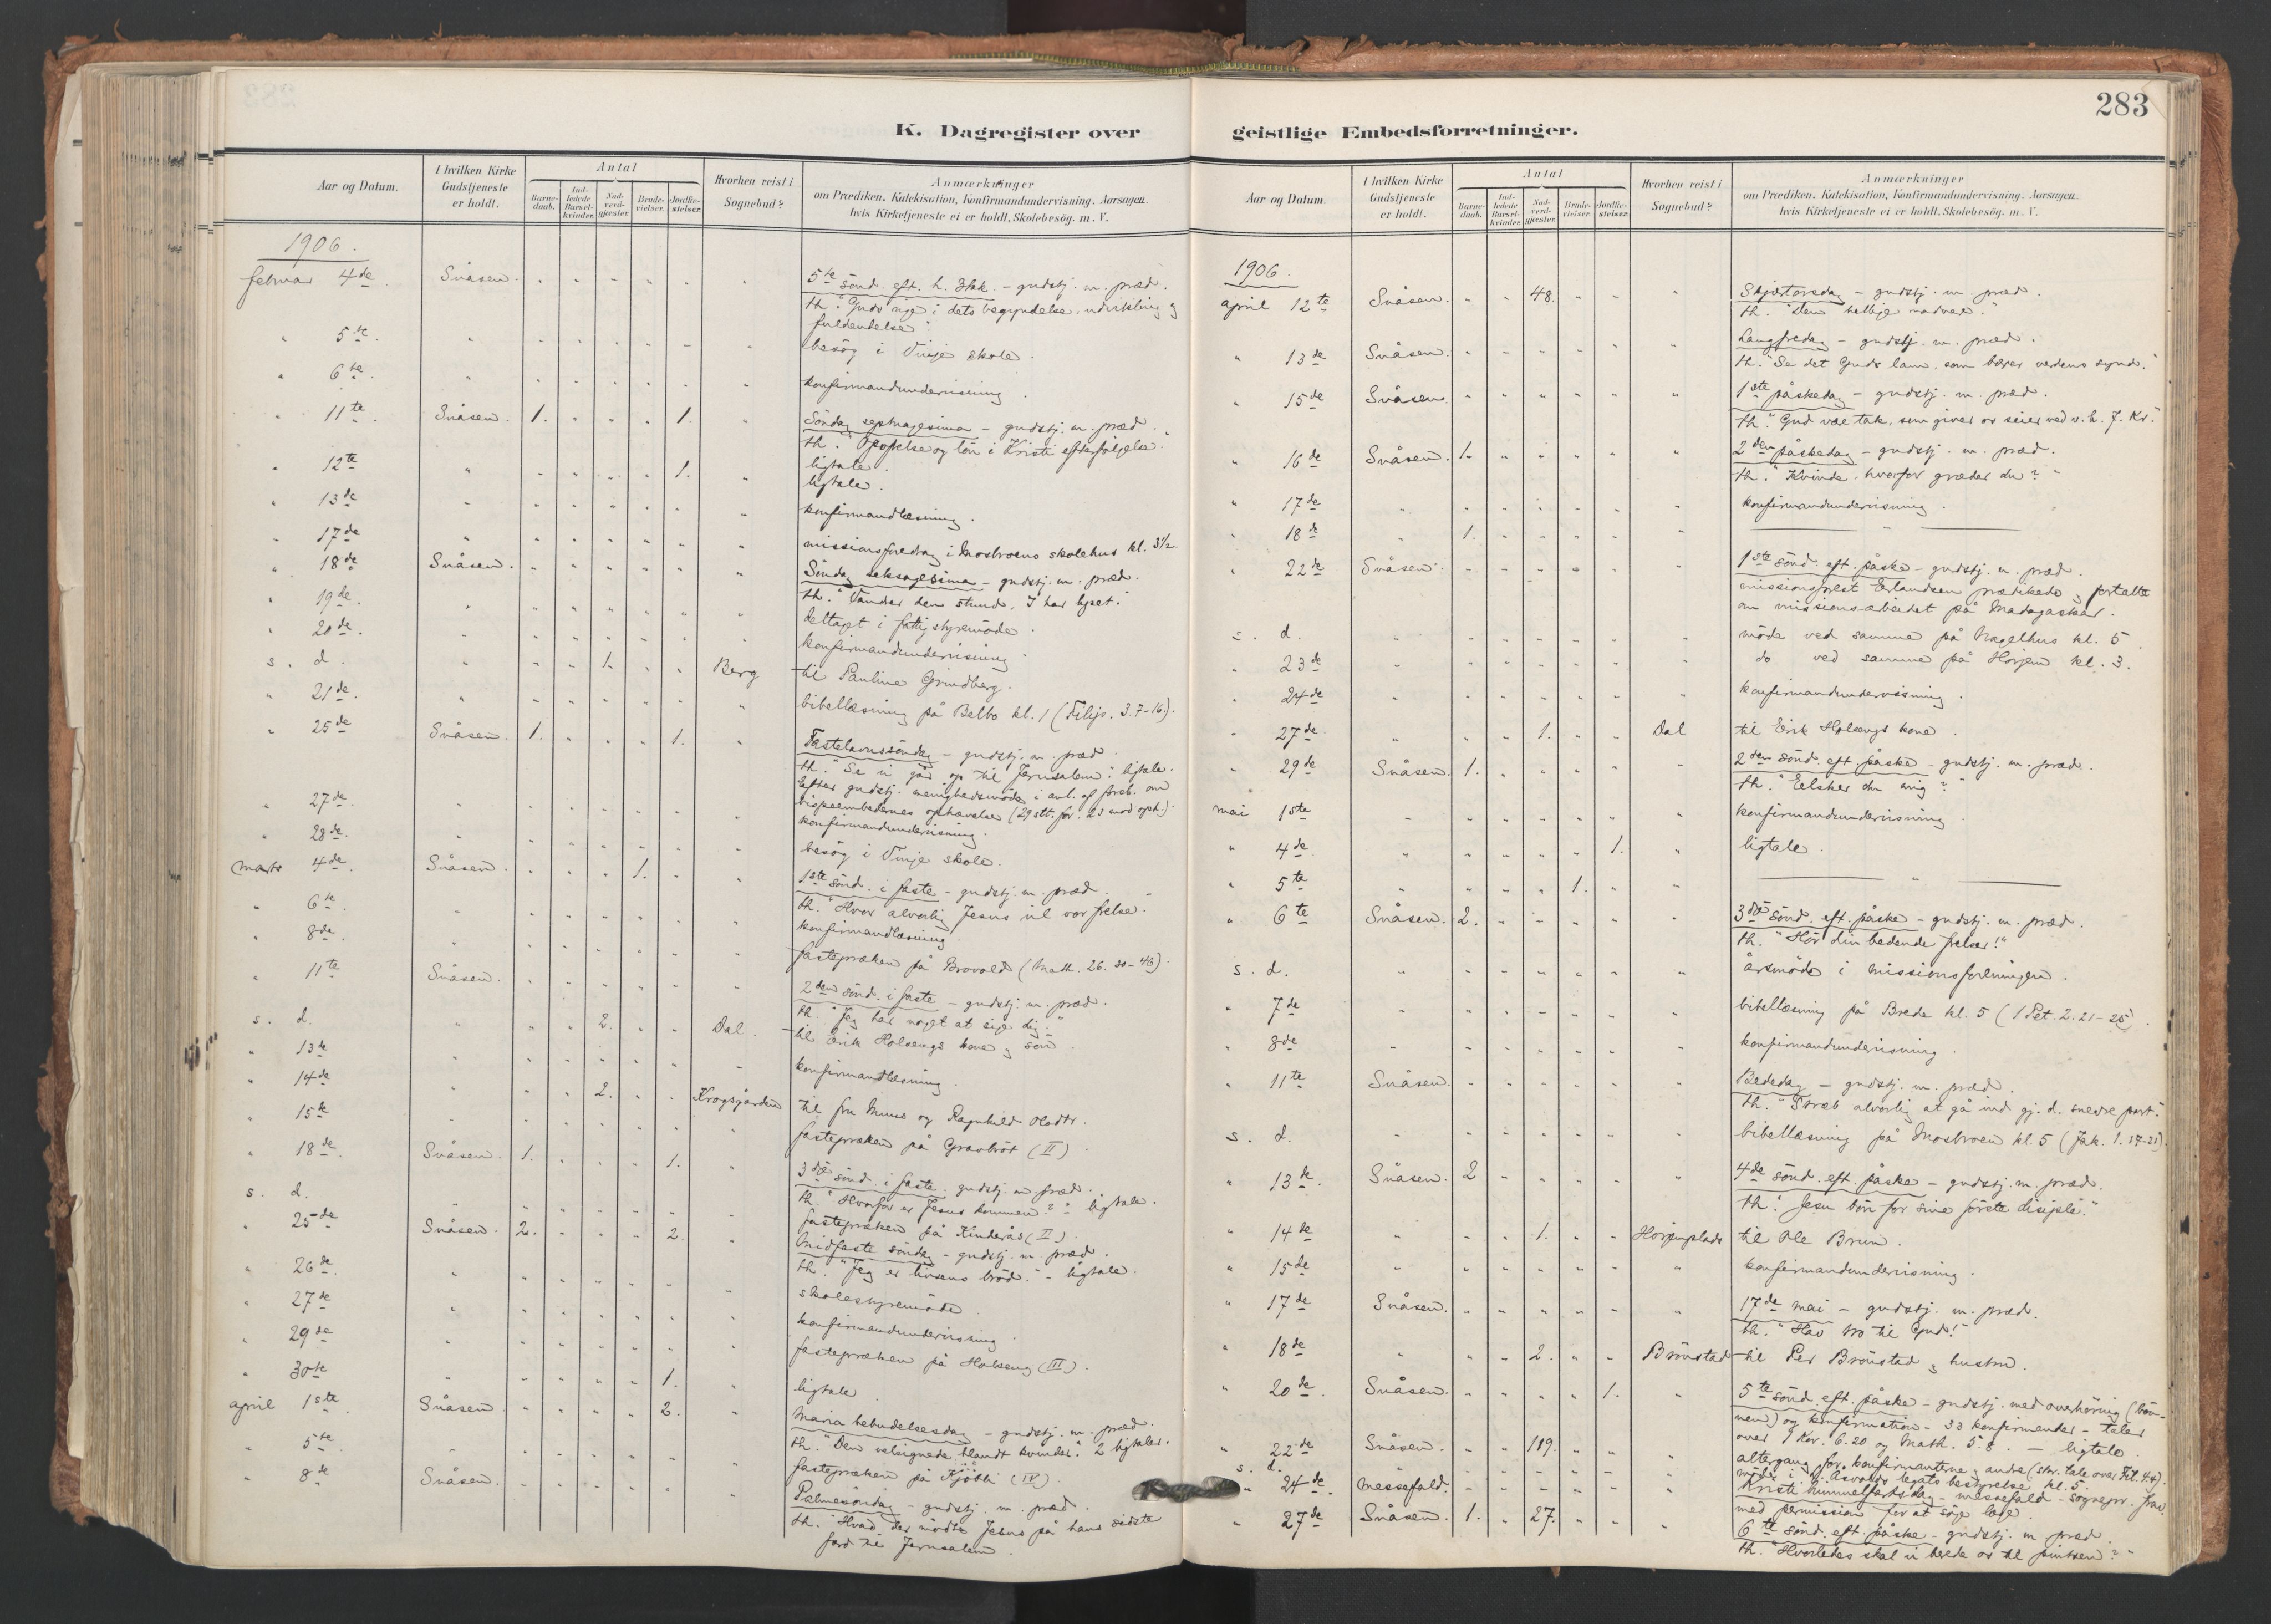 283
K. Dagregister over
geistlige Embedsforretninger.
Aar og Datum.
I hvilken Kirke Gudstjeneste er holdt.
Antal
Barnedaab. Indledede Barselkvinder. Nadverdgjester. Brudevielser. Jordfæstelser.
Hvorhen reist i Sognebud?
Anmærkninger
om Prædiken, Katekisation, Konfirmandundervisning, Aarsagen, hvis Kirketjeneste ei er holdt, Skolebesög. m. V.
1906.
februar 4de Snåsen. 5te sönd. eft. h. 3 kk. - gudstj. m. præd.
th. "Guds rige i dets begyndelse, udvikling og
fuldendelse".
" 5te. besög i Vinje skole.
" 6te. konfirmandundervisning.
" 11te Snåsen. 1. 1. Söndag septuagesima - gudstj. m. præd.
th. "Opofrelse og lön i Kristi efterfölgelse."
ligtale.
" 12te 1. ligtale.
" 13de konfirmandlæsning.
" 17de missionsforedrag i Mosbroens skolehus kl. 3 1/2.
" 18de Snåsen. Söndag seksagesima - gudstj. m. præd.
th. "Vandrer den stund, I har lyset."
" 19de. deltaget i fattigstyremöde.
" 20de. konfirmandundervisning.
s. d. 1. Berg til Pauline Grundberg.
" 21de. bibellæsning på Belbo kl. 1 (Filip. 3.7-16).
" 25de Snåsen. 1. 1. Fastelavnssöndag - gudstj. m. præd.
th. "Se vi går op til Jerusalem". ligtale.
Efter gudstj. menighedsmöde i anl. af forsl. om
bispeembedernes ophævelse (29 stt. for. 23 mod oph.).
" 27de. konfirmandundervisning.
" 28de. besög i Vinje skole.
marts 4de. Snåsen. 1. 1ste sönd. i faste - gudstj. m. præd.
th. "Hvor alvorlig Jesus vil vor frelse."
" 6te. konfirmandlæsning.
" 8de. fastepræken på Brovold (Math. 26. 30-46).
" 11te Snåsen. 2den sönd. i faste - gudstj. m. præd.
th. "Jeg har noget at sige dig."
s. d. 2. Dal. til Erik Holsengs kone og sön.
" 13de konfirmandlæsning.
" 14de 2. Krogsgården til fru Muus og Ragnhild Oldtr.
" 15de fastepræken på Gravbröt (II).
" 18de Snåsen. 1. 1. 3die sönd. i faste. gudstj. m præd.
th. "Hvorfor er Jesus kommen?" ligtale.
s. d. fastepræken på Kinderås (I).
" 25de Snåsen. 2. 2. Midfaste söndag - gudstj. m. præd.
th. "Jeg er livsens bröd." - ligtale.
" 26de. skolestyremöde.
" 27de konfirmandundervisning.
" 29de fastepræken på Holseng (III).
" 30te 1. ligtale.
april 1ste Snåsen. 2. Maria bebudelsesdag - gudstj. m. præd.
th. "Den velsignede blandt kvinder." 2 ligtaler.
" 5te. fastepræken på Kjöbli (IV).
" 8de Snåsen. Palmesöndag - gudstj. m. præd.
th. "Hvad der mödte Jesus på hans sidste
færd til Jerusalem.
Aar og Datum.
I hvilken Kirke Gudstjeneste er holdt.
Antal
Barnedaab. Indledede Barselkvinder. Nadverdgjester. Brudevielser. Jordfæstelser.
Hvorhen reist i Sognebud?
Anmærkninger
om Prædiken, Katekisation, Konfirmandundervisning, Aarsagen, hvis Kirketjeneste ei er holdt, Skolebesög. m. V.
1906.
april 12te Snåsen. 48. Skjærtorsdag - gudstj. m. præd.
th. "Den hellige nadver."
" 13de Snåsen. Langfredag - gudstj. m. præd.
th. "Se det Guds lam, som bærer verdens synd."
" 15de Snåsen. 1ste påskedag - gudstj. m. præd.
th. "Gud være tak, som giver os seier ved v. h. J. Kr."
" 16de Snåsen. 1. 2den påskedag - gudstj. m. præd.
th. "Kvinde, hvorfor græder du?"
" 17de konfirmandundervisning.
" 18de 1. — " —
" 22de Snåsen. 1ste sönd. eft. påske - gudstj. m. præd.
missionsprest Erlandsen prædikede og fortalte
om missionsarbeidet på Madagaskar.
s. d. möde ved samme på Nagelhus kl. 5
" 23de do ved samme på Horjem kl. 3.
" 24de konfirmandundervisning.
" 27de. 1. Dal til Erik Holsengs kone.
" 29de Snåsen. 1. 2den sönd. eft. påske - gudstj. m. præd.
th. "Elsker du mig?"
mai 1ste konfirmandundervisning.
" 4de. 1. ligtale.
" 5te 1. — " —
" 6te Snåsen. 2. 3die sönd. eft. påske - gudstj. m. præd.
th. "Hör din bedende frelser!"
s. d. årsmöde i missionsforeningen.
" 7de bibellæsning på Brede kl. 5 (1 Pet. 2. 21-25).
" 8de konfirmandundervisning.
" 11te Snåsen. Bededag - gudstj. m. præd.
th. "Stræb alvorlig at gå ind gj. d. snevre port."
s. d. bibellæsning på Mosbroen kl. 5 (Jak. 1. 17-21).
" 13de. Snåsen. 2 4de sönd. eft. påske - gudstj. m. præd.
th. "Jesu bön for sine förste disiple."
" 14de 1. Horjemplads til Ole Brun.
" 15de konfirmandundervisning.
" 17de Snåsen. 17de mai - gudstj. m. præd.
th. "Hav tro til Gud!"
" 18de 2. Brönstad til Per Brönstad og hustru.
" 20de. Snåsen. 1. 5te sönd. eft. påske - gudstj. med overhöring (bön-
nen) og konfirmation - 33 konfirmander - taler
over 1 Kor. 6.20 og Math. 5.8. - ligtale.
" 22de Snåsen. 119. altergang for konfirmanterne og andre (skr. tale over Fil. 4.4).
s. d. möde i Åsvolds legats bestyrelse kl. 5.
" 24de. messefald. Kristi himmelfartsdag - messefald - sognepr. frav.
med permission for at söge læge.
" 27de Snåsen. 1. 27. 6te sönd. eft. påske - gudstj. m. præd.
th. "Hvorledes skal vi berede os til pintsen?"